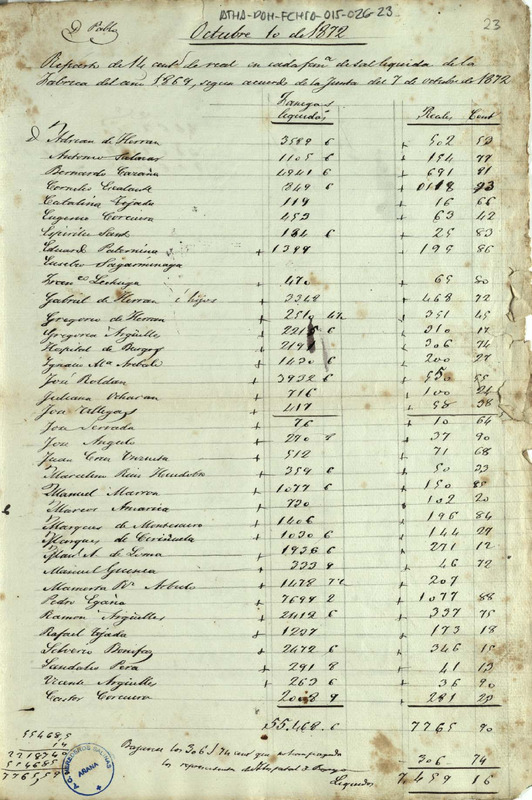 ATHA-DOH-FCHTA-015-026-23
D Pablo
23
Octubre 10 de 1872
Reparto de 14 centˢ de real en cada fanᵃ de sal liquida de la
Fabrica del año 1869, segun acuerdo de la Junta del 7 de octubre de 1872
Fanegas liquidas Reales Cent
D Adrian de Herran 3589 6 + 502 53
Antonio Salazar 1105 6 + 154 77
Bernardo Cazaña 4941 6 + 691 81
Cornelio 849 6 + 0118 93
Catalina Tejada 119 + 16 66
Eugenio Corcuera 453 + 63 42
Espiritu Santo 184 6 + 25 83
Eduard Paternina + 1399 + 195 86
Eusebio Sagarminaga
Franᶜᵒ Lechuga + 470 + 65 80
Gabriel de Herran é hijos + 3348 + 468 72
Gregorio de Herran + 2510 + 351 45
Gregoria Argüelles + 2215 6 + 310 17
Hospital de Burgos + 2191 + 306 74
Ignacio Mᵃ Arebalo + 1430 6 + 200 27
José Roldan + 3932 6 + 550 55
Juliana Ocharan + 716 + 100 24
Joa Villegas + 417 + 58 38
Joa Serrada + 76 + 10 64
Jose Angulo + 270 9 + 37 90
Juan Cruz Unzueta + 512 + 71 68
Marcelino Ruiz + 359 6 + 50 33
Manuel Marron + 1077 6 + 150 85
Marcos Amarica + 730 + 102 20
Marques de Montesacro + 1406 + 196 84
Marques de Cerezuela + 1030 6 + 144 27
Manˡ A. de Loma + 1936 6 + 271 12
Manuel Guinea + 333 9 + 46 72
Mamerta Arbedo + 1478 + 207
Pedro Egaña + 7699 2 + 1077 88
Ramon Argüelles + 2412 6 + 337 75
Rafael Tejada + 1237 + 173 18
Silverio Bonifaz + 2472 6 + 346 15
Sandalio Pera + 291 8 + 41 13
Vicente Argüelles + 263 6 + 36 90
Castor Corcuera + 2008 9 + 281 23
55.468.6 7765 90
55468,5
14
2218740
554685
7765,59
Bajanse los 306 / 74 cent que
los representantes del Hospital de Burgos 306 74
Liquidos 7.459 16
A.C. HEREDEROS SALINAS
ARAÑA